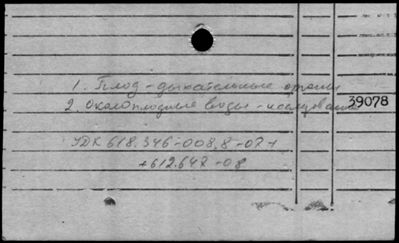 1. Плод - дыхательные органы
2. Околоплодные воды - исследование
39078
УДК 618.346-008.8-07+
+612.647-08